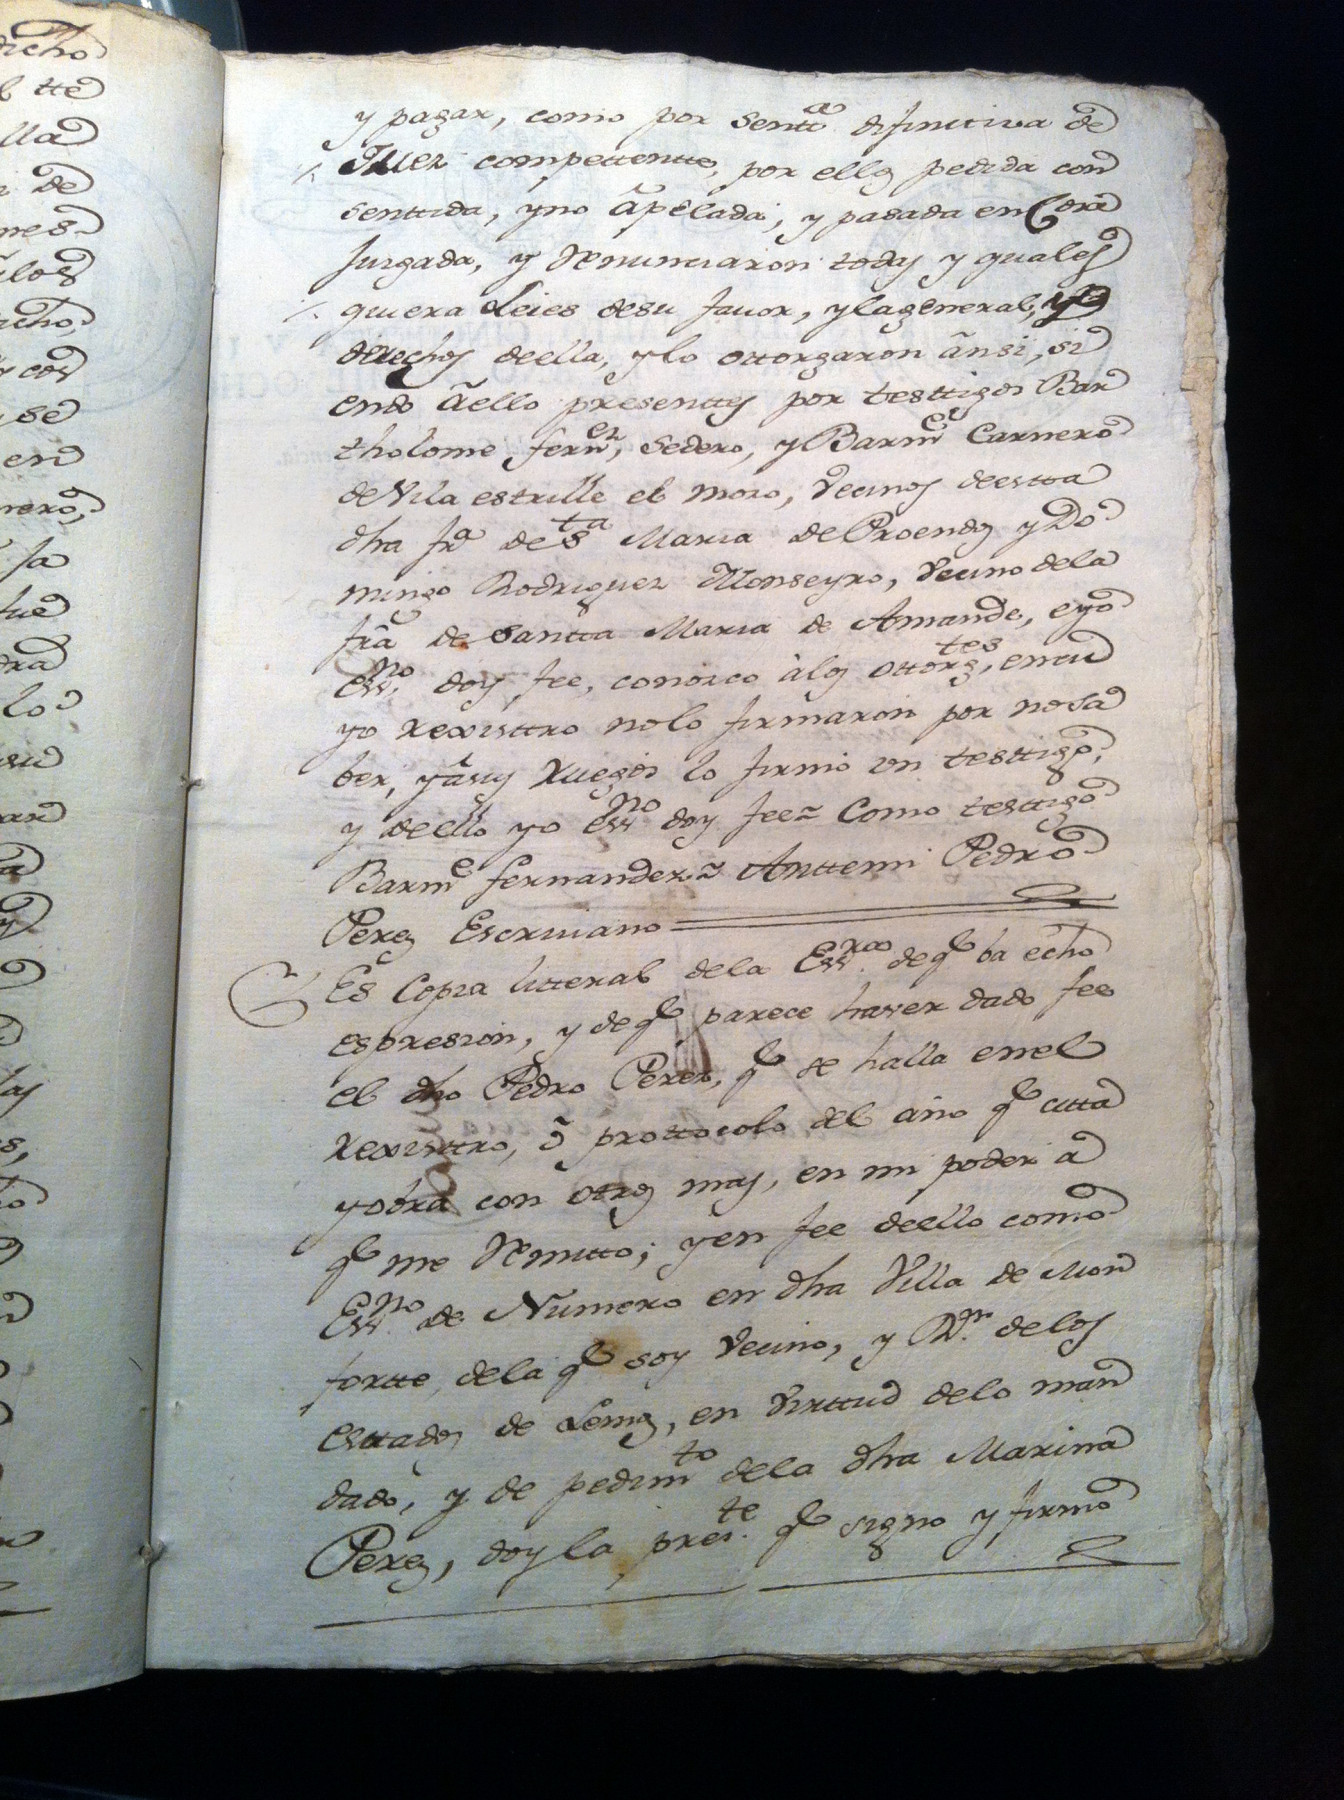 y pagar, como por sentt.ª difinitiva de
Juez compettentte, por ellos pedida con
senttida, y no apelada, y pasada en Cosa
Juzgada, y Renunciaron todas y quales
quiera Leies de su favor, y la general, y
derechos de ella, y lo ottorgaron ansi, si
endo a ello presenttes por testtigos Bar
tholome fern.ez, sedero, y Barm.e Carnero
de Vila estrille el mozo, Vecinos de estta
dha fra de S.ta Maria de Proendos y Do
mingo Rodriguez Monseyro, Vecino dela
fra de Santta Maria de Amande, e yo
Ess.no doy fee, conozco à los ottorg.tes, en cu
yo Rexisttro no lo firmaron por no sa
ber, y a sus Ruegos lo firmo un testtigo,
y de ello yo Ess.no doy fee = Como testtigo
Barm.e fernandez = Anttemi Pedro
Perez Escriviano
Es Copia litteral de la Ess.ra de q.e ba echo
espresion, y de q.e parece haver dado fee
el dho Pedro Perez, q.e se halla en el
Rexisttro, o prottocolo del año q.e citta
y obra con otros mas, en mi poder a
q.e me Remitto; y en fee de ello como
Ess.no de Numero en dha Villa de Mon
fortte, de la q.e soy Vecino, y de los
Esttados de Lemos, en Virttud de lo man
dado, y de pedim.to de la dha Marina
Perez, doy la pres.te q.e signo y firmo